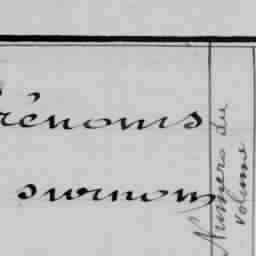 rénoms
surnom
Numéro du
volume